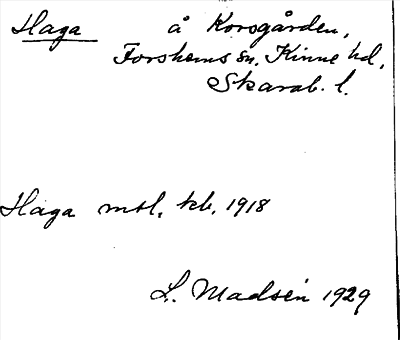 Haga å Korsgården,
Forshems sn. Kinne hd.
Skarab. l.
Haga mtl, kb, 1918
L. Madsén 1929